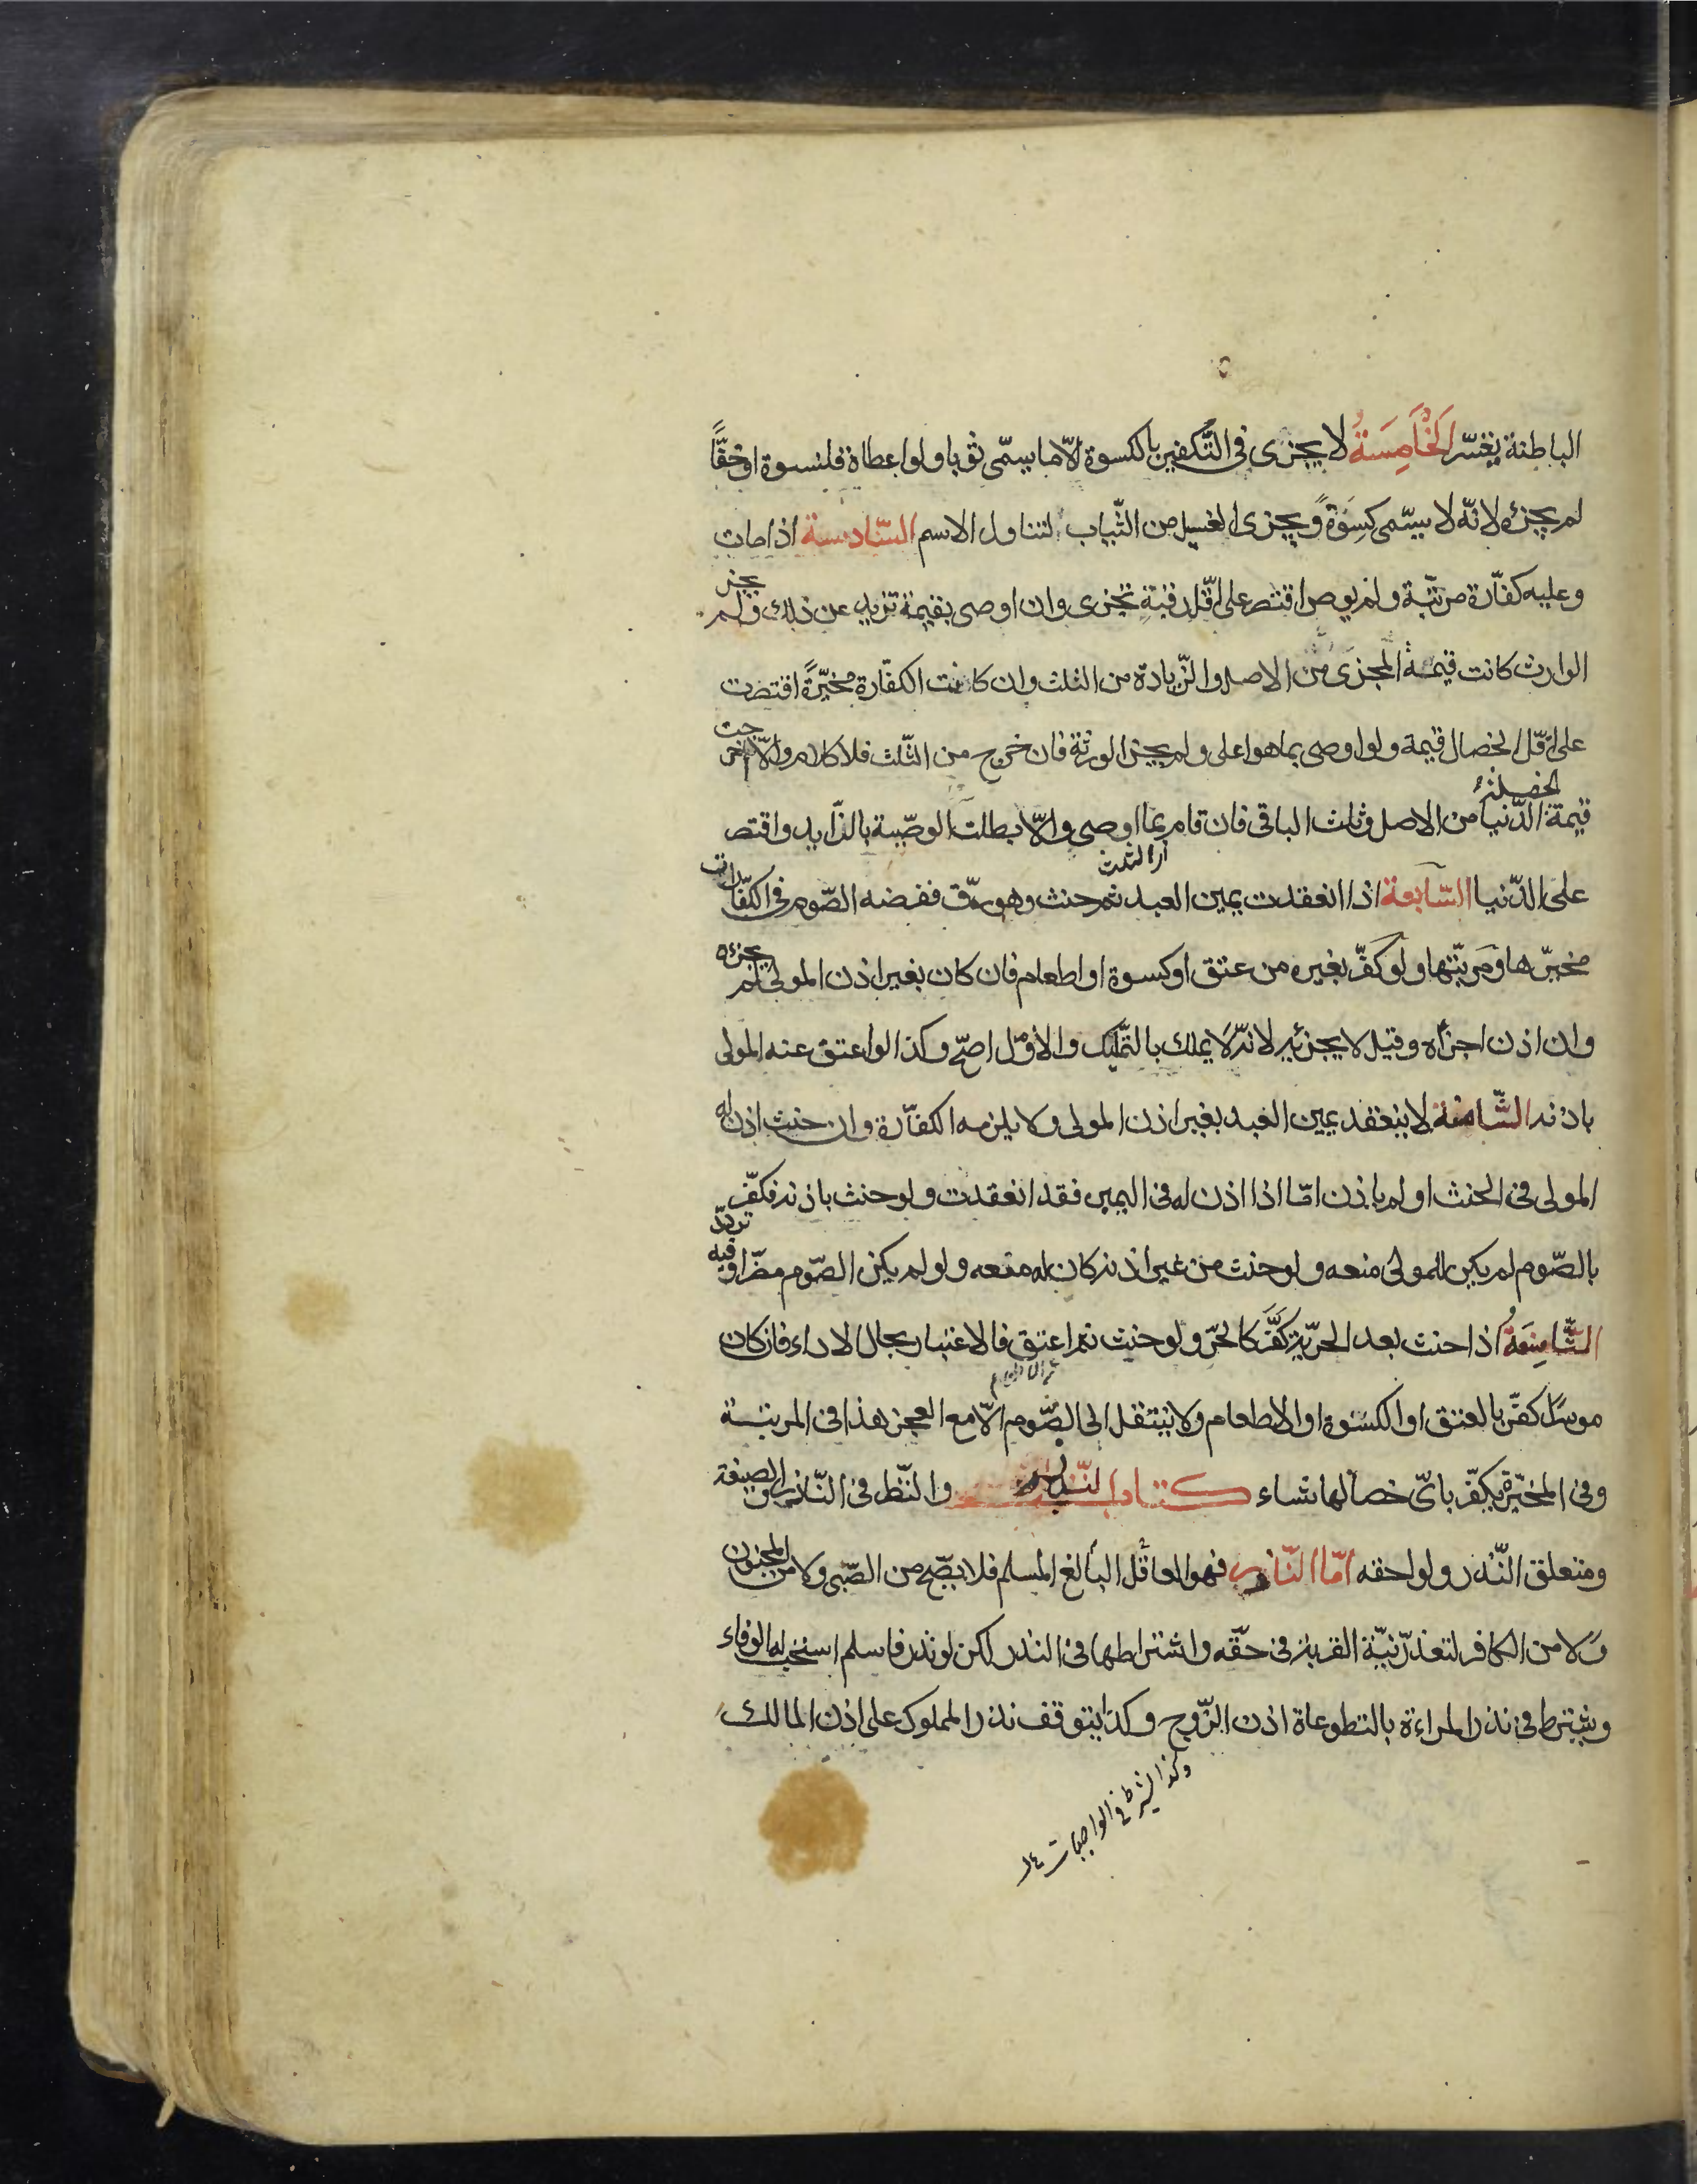 الباطنة يغسّر الْخَامِسَةُ لا يجزى فى التّكفير بالكسوة الّا ما يسمّى ثوبا ولو اعطاه قلنسوة او خفًّا
لم يجزئه لانّه لا يسمّى كِسوَةً ويجزى الغسيل من الثّياب لتناول الاسم السّادسة اذا مات
وعليه كفّارة مرتّبة ولم يوص اقتصر على اقّل رقبةٍ تجزى وان اوصى بقيمة تزيد عن ذلك ولم يجز
الوارث كانت قيمةُ المجزى من الاصل والزّيادة من الثلث وان كانت الكفّارة مخيّرةً اقتصرت
على اقّل الخصال قيمة ولو اوصى بما هو اعلى ولم يجيز الورثة فان خرج من الثّلث فلا كلام والّا اخرجت
قيمة الخصلة الدّنيا من الاصل وثلث الباقى فان قام بما اوصى والّا بطلت الوصيّة بالزّايد واقتصر
على الدّنيا السّابعة اذا انعقدت يمين العبد ثم حنث وهو رقّ ففرضه الصّوم فى الكفّارات
مخيّرها ومَرتّبها ولو كفّر بغيره من عتق او كسوة او اطعام فان كان بغير اذن المولى لم يجزئه
وان اذن اجزأه وقيل لا يجزئيه لانّه لَا يملك بالتّمليك والاوّل اصحّ وكذا لو اعتق عنه المولى
باذنه الثّامنة لا ينعقد يمين العبد بغير اذن المولى ولا يلزمه الكفّارة وان حنث اذن له
المولى فى الحنث او لم ياذن امّا اذا اذن له فى اليمين فقد انعقدت ولو حنث باذنه فكفّر
بالصّوم لم يكين للمولى منعه ولو حنث من غير اذنه كان له منعه ولو لم يكن الصّوم مضّرا وفيه تردّد
الثّامِنَةُ اذا حنث بعد الحريّة كفَّر كالحرّ ولو حنث ثم اعتق فالاعتبار بحال الاداء فان كان
موسرًا كفّر بالعتق او الكسوة او الاطعام ولا ينتقل الى الصّوم الّا مع العجز هذا فى المرتبة
وفى المخيّرة يكفّر باىّ خصالها شاء كتاب النّذر والنّظر فى النّاذر والصيغة
ومتعلق النّذر ولواحقه امّا النّاذر فهو العاقل البالغ المسلم فلا يصّح من الصّبى ولا من المجنون
ولا من الكافر لتعذّر نيّة القربة فى حقّه واشتراطها فى النذر لكن لو نذر فاسلم استحبّ له الوفاء
ويشترط فى نذر المراءة بالتطوعاة اذن الزّوج وكذا يتوقف نذر المملوك على اذن المالك
وكذا يشترط فى الواجبات